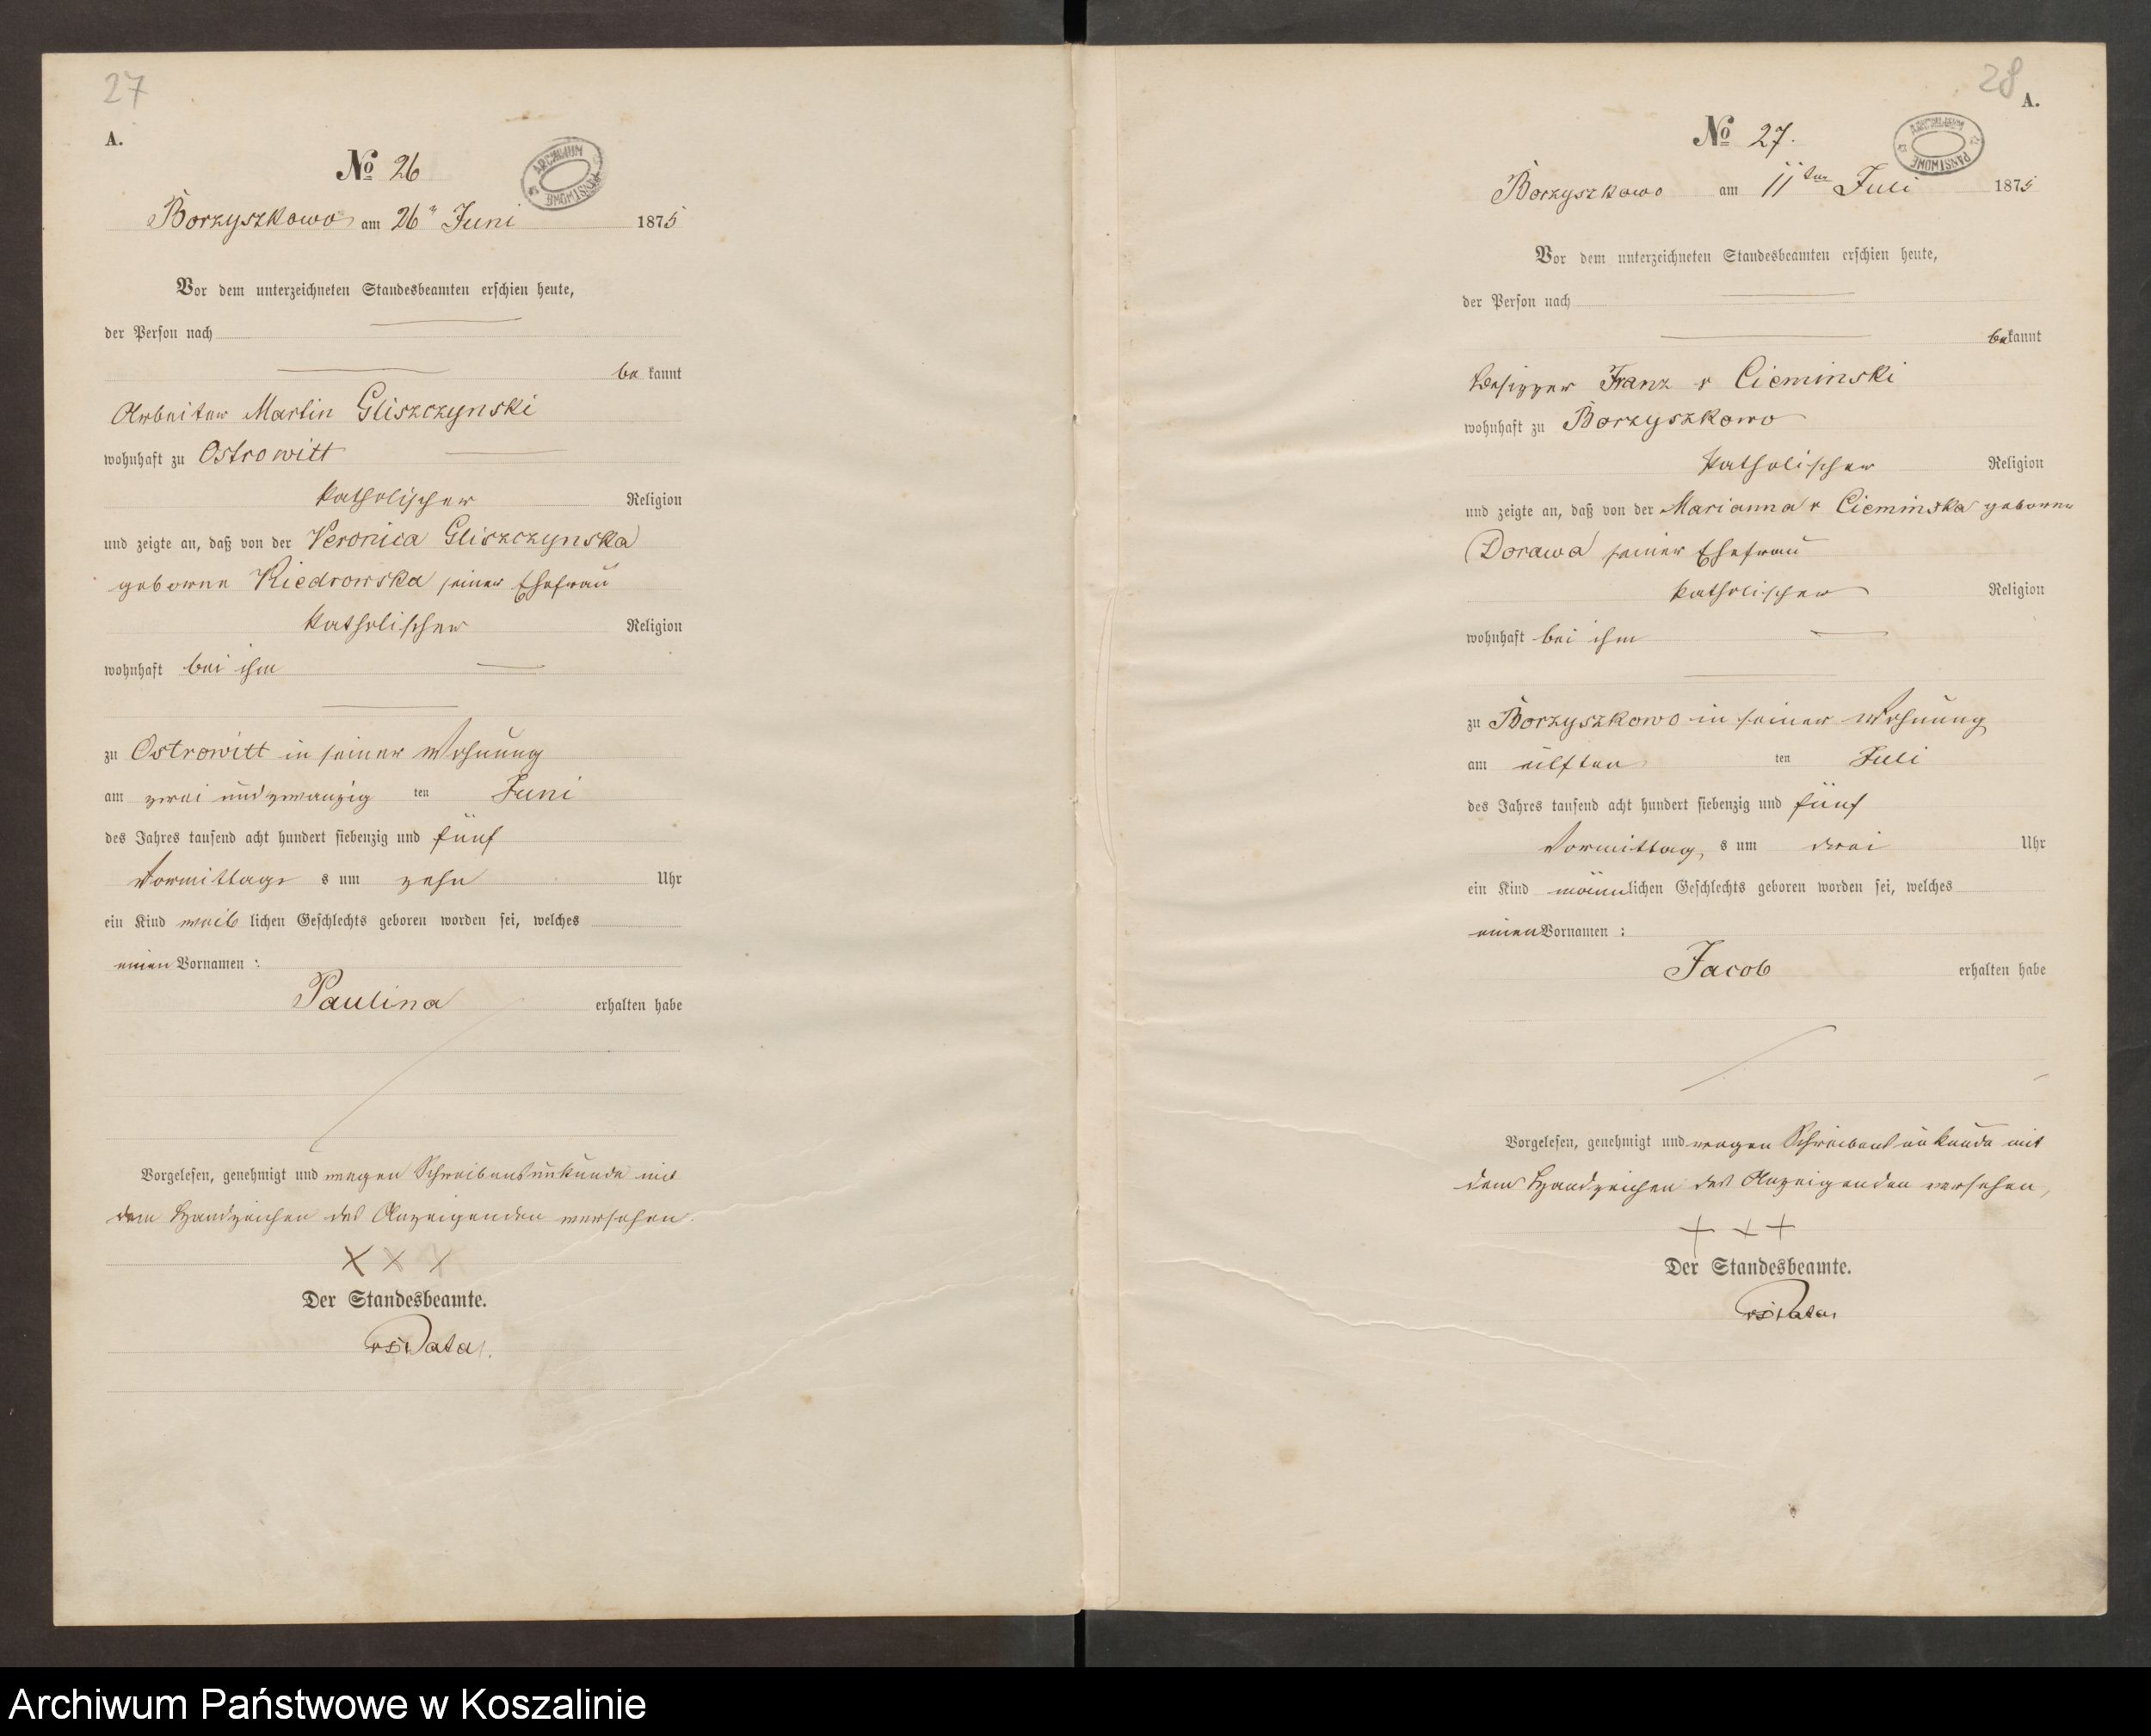 27
A.
ARCHIWUM PAŃSTWOWE
No 26
Borzyszkowo am 26" Juni 1875
Vor dem unterzeichneten Standesbeamten erschien heute,
der Person nach
be kannt
Arbeiter Martin Gliszczynski
wohnhaft zu Ostrowitt
katholischer Religion
und zeigte an, daß von der Veronica Gliszczynska
geborne Kiedrowska seiner Ehefrau
katholischer Religion
wohnhaft bei ihm
zu Ostrowitt in seiner Wohnung
am zwei und zwanzig ten Juni
des Jahres tausend acht hundert siebenzig und fünf
Vormittags s um zehn Uhr
ein Kind weib lichen Geschlechts geboren worden sei, welches
einen Vornamen :
Paulina erhalten habe
Vorgelesen, genehmigt und wegen Schreibensunkunde mit
dem Handzeichen des Anzeigenden versehen.
X X X
Der Standesbeamte.
28
A.
ARCHIWUM PAŃSTWOWE
No 27.
Borzyszkowo am 11ten Juli 1875
Vor dem unterzeichneten Standesbeamten erschien heute,
der Person nach
bekannt
Besitzer Franz v Cieminski
wohnhaft zu Borzyszkowo
katholischer Religion
und zeigte an, daß von der Marianna v Cieminska geborne
Dorawa seiner Ehefrau
katholischer Religion
wohnhaft bei ihm
zu Borzyszkowo in seiner Wohnung
am eilften ten Juli
des Jahres tausend acht hundert siebenzig und fünf
Vormittag, s um drei Uhr
ein Kind männlichen Geschlechts geboren worden sei, welches
einen Vornamen :
Jacob erhalten habe
Vorgelesen, genehmigt und wegen Schreibensunkunde mit
dem Handzeichen des Anzeigenden versehen,
+ + +
Der Standesbeamte.
Archiwum Państwowe w Koszalinie